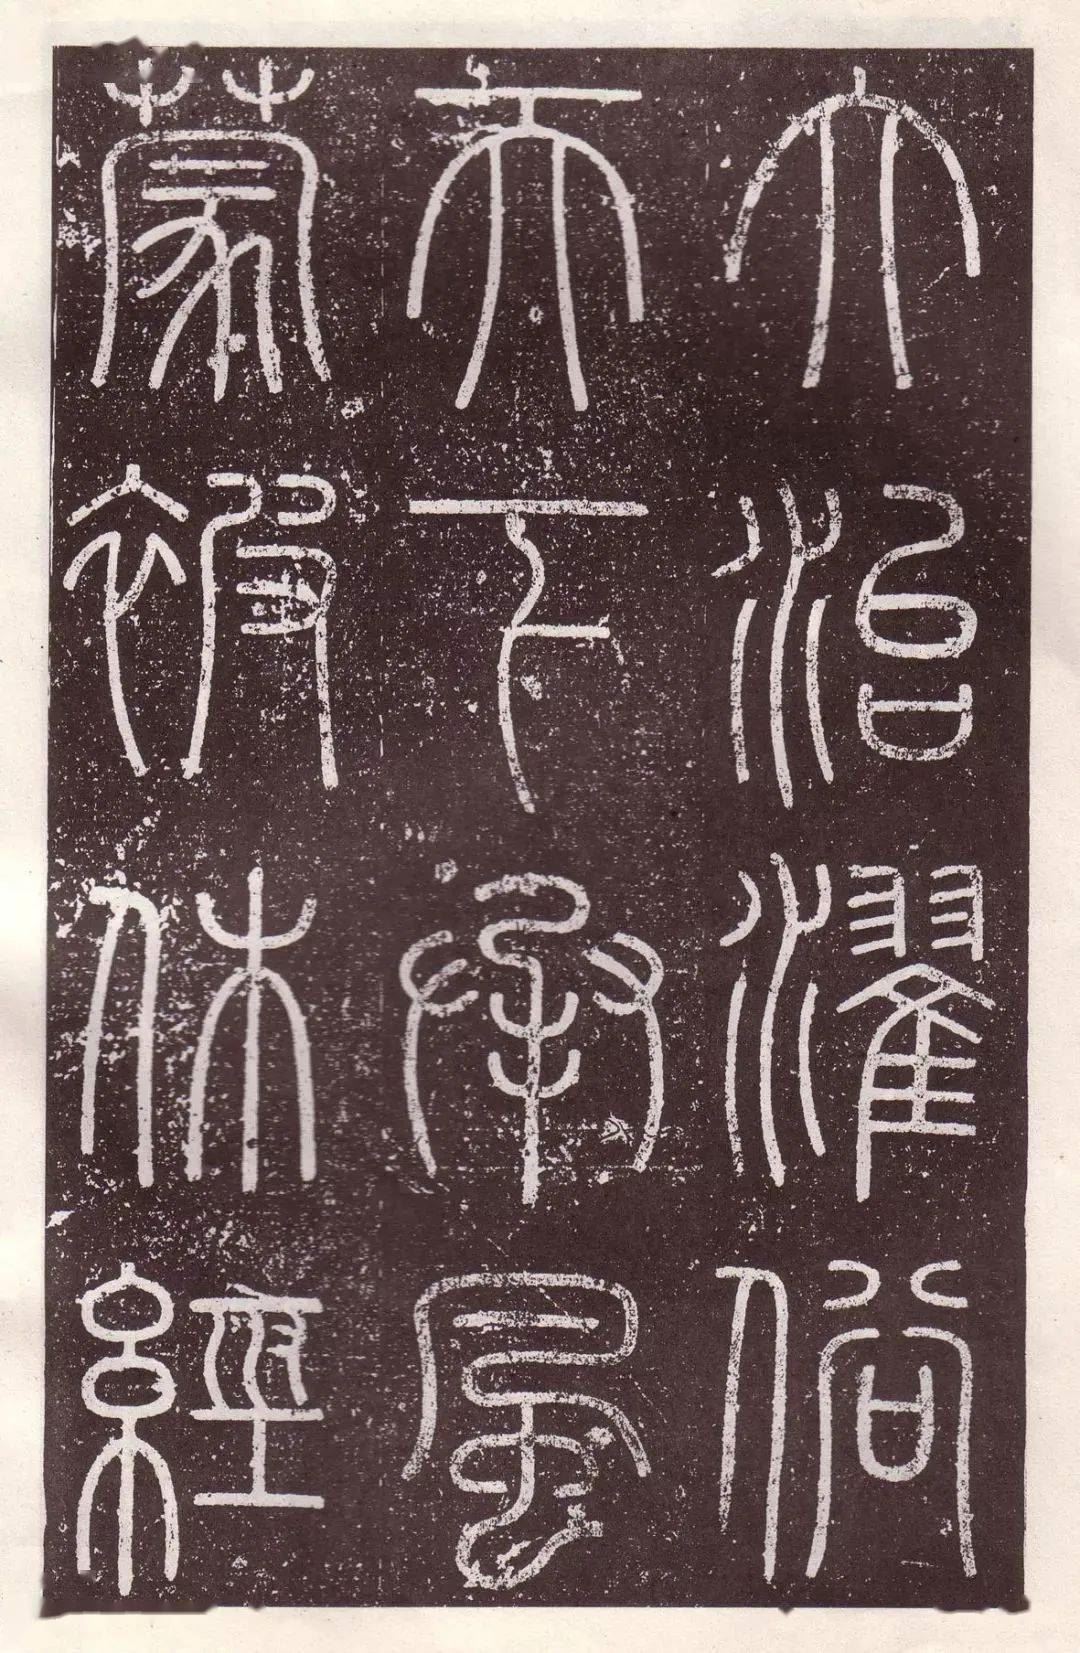 大治濯俗
天下承風
蒙被休經